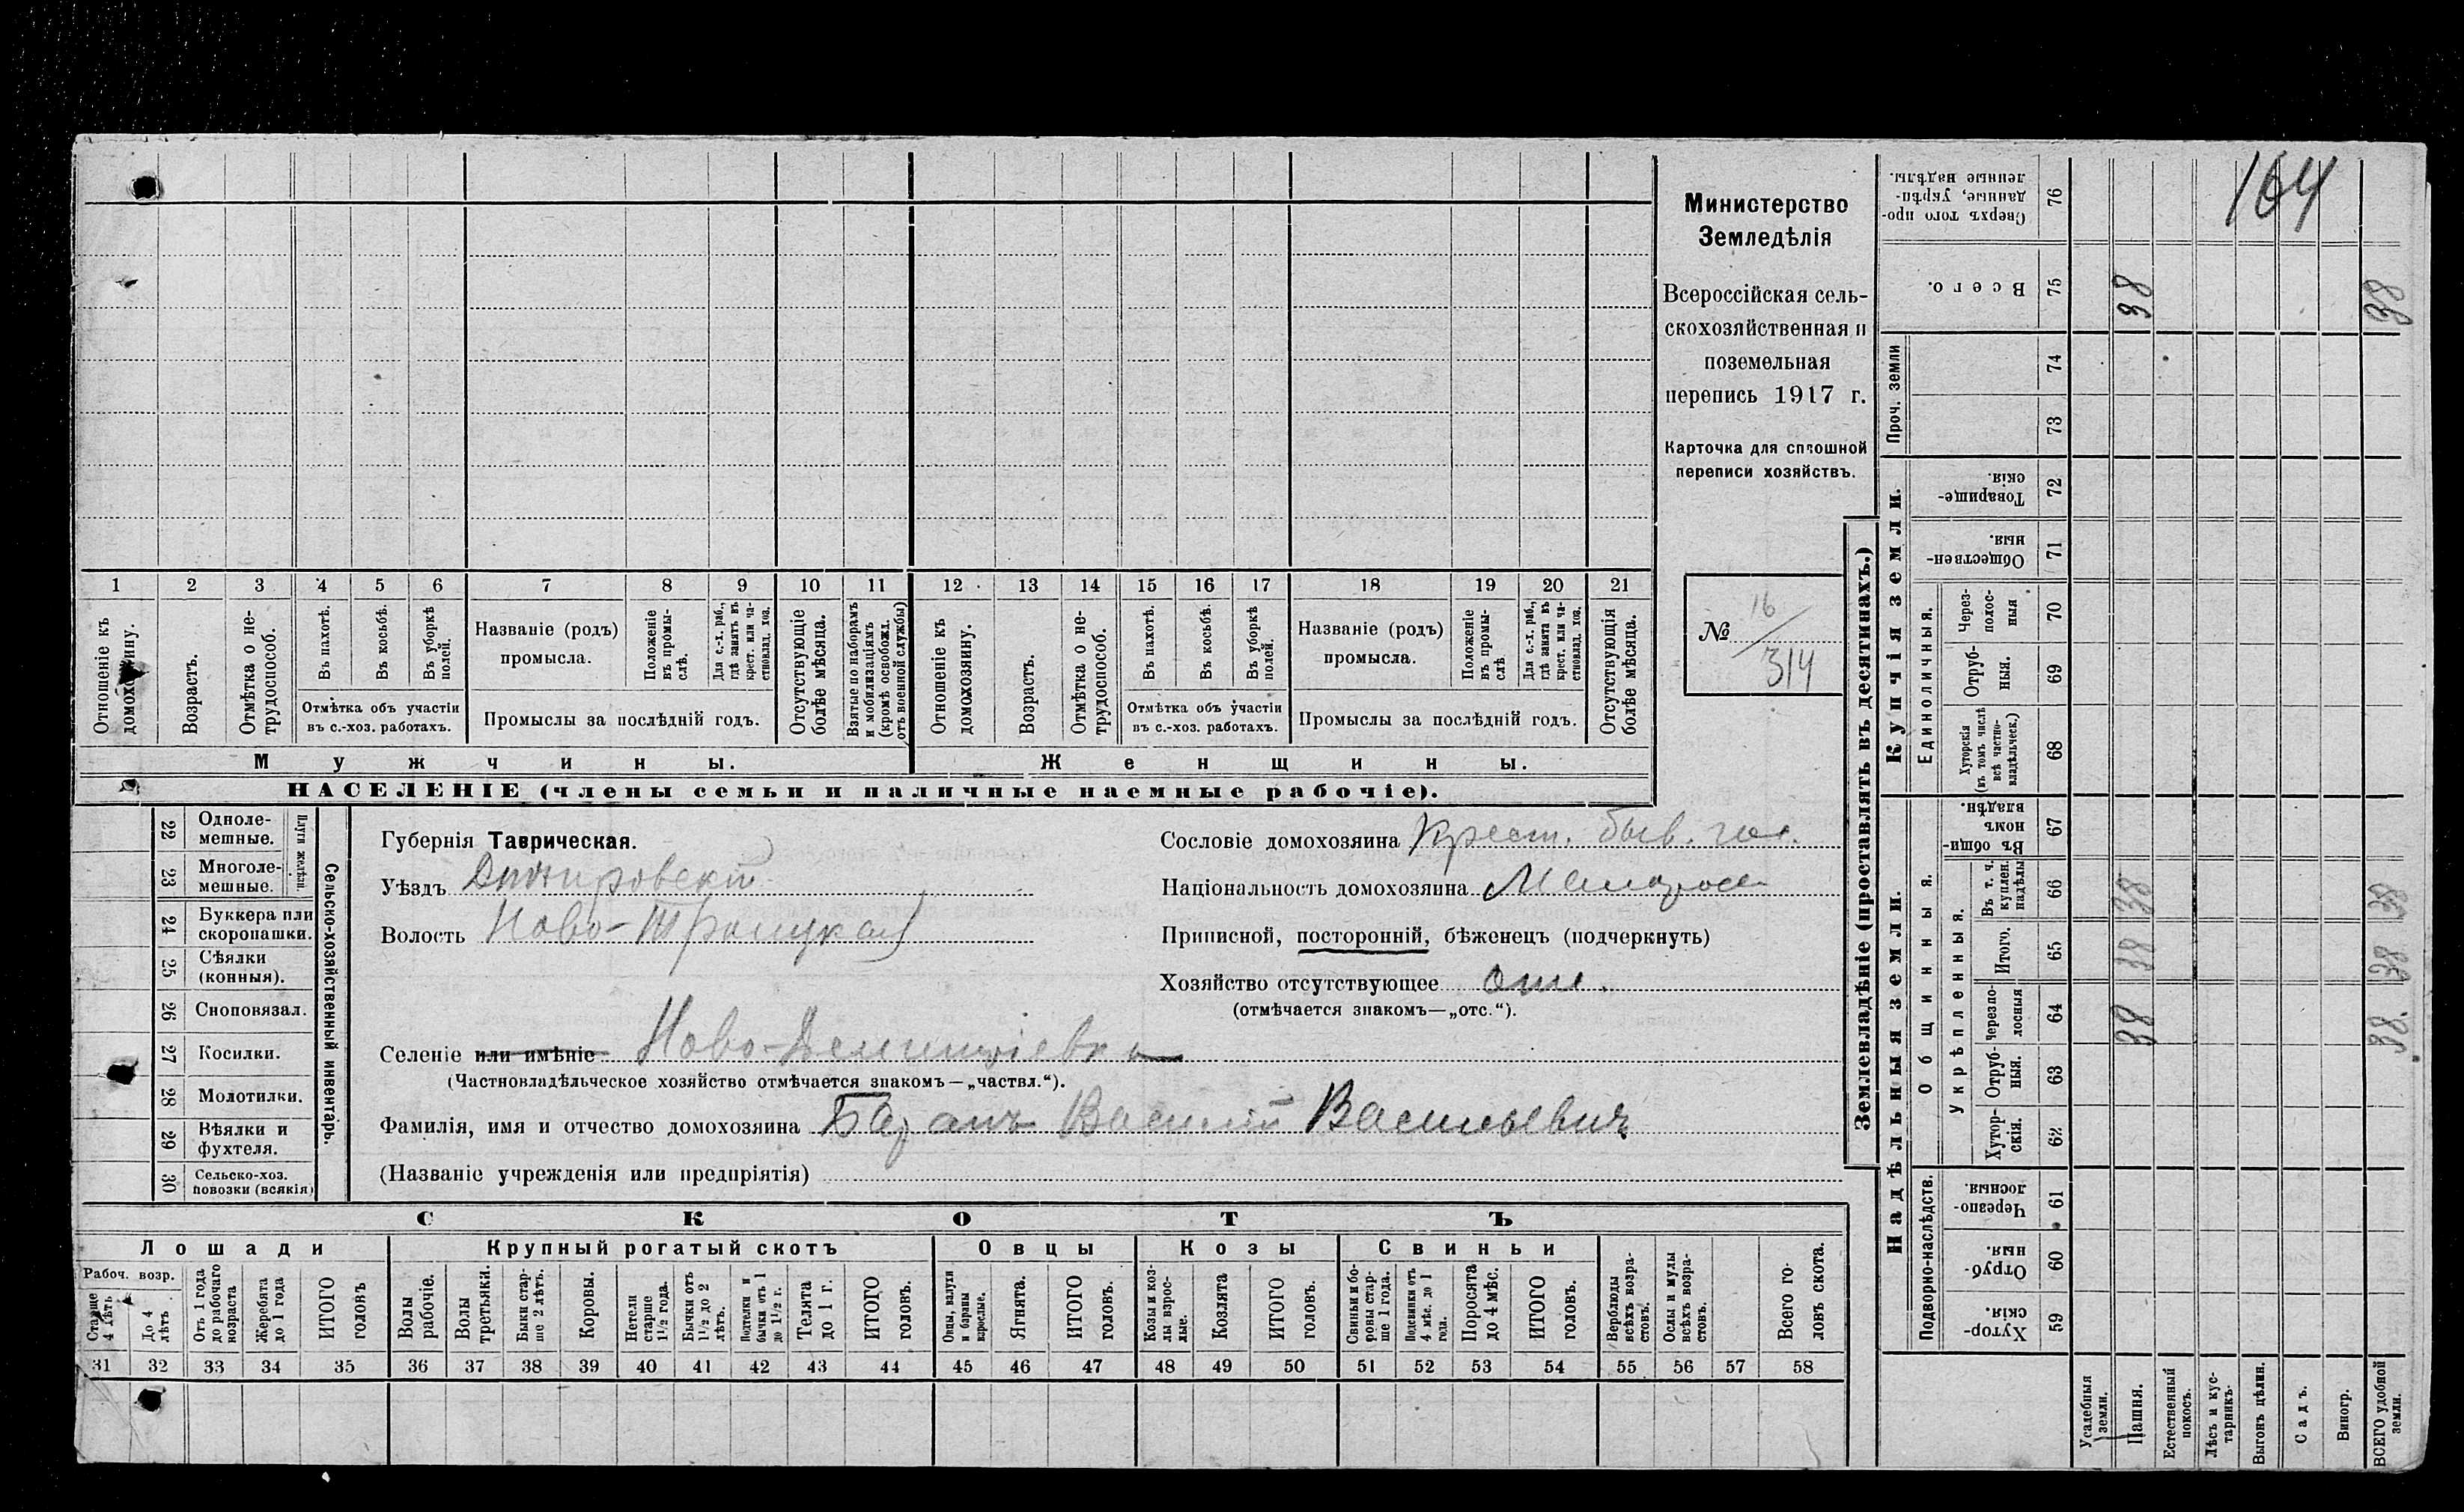 164
Министерство
Земледѣлія
Всероссійская сель-
скохозяйственная и
поземельная
перепись 1917 г.
Карточка для сплошной
переписи хозяйствъ.
№ 16/314
1 2 3 4 5 6 7 8 9 10 11 12 13 14 15 16 17 18 19 20 21
Отношеніе къ домохозяину.
Возрастъ.
Отмѣтка о не-трудоспособ.
Въ пахотѣ.
Въ косьбѣ.
Въ уборкѣ полей.
Отмѣтка объ участіи
въ с.-хоз. работахъ.
Названіе (родъ)
промысла.
Положеніе въ промы-слѣ.
Для с.-х. раб., гдѣ занятъ въ крест. или ча-стновлад. хоз.
Промыслы за послѣдній годъ.
Отсутствующіе болѣе мѣсяца.
Взятые по наборамъ и мобилизаціямъ (кромѣ освобожд. отъ военной службы)
Отношеніе къ домохозяину.
Возрастъ.
Отмѣтка о не-трудоспособ.
Въ пахотѣ.
Въ косьбѣ.
Въ уборкѣ полей.
Отмѣтка объ участіи
въ с.-хоз. работахъ.
Названіе (родъ)
промысла.
Положеніе въ промы-слѣ
Для с.-х. раб., гдѣ занята въ крест. или ча-стновлад. хоз.
Промыслы за послѣдній годъ.
Отсутствующія болѣе мѣсяца.
Мужчины.
Женщины.
НАСЕЛЕНІЕ (члены семьи и наличные наемные рабочіе).
22 Одноле-мешные.
23 Многоле-мешные.
Плуги желѣзн.
24 Буккера или скоропашки.
25 Сѣялки (конныя).
26 Сноповязал.
27 Косилки.
28 Молотилки.
29 Вѣялки и фухтеля.
30 Сельско-хоз. повозки (всякія)
Сельско-хозяйственный инвентарь.
Губернія Таврическая.
Уѣздъ Днѣпровскій
Волость Ново-Троицкая
Селеніе или имѣніе Ново-Деминріевка
(Частновладѣльческое хозяйство отмѣчается знакомъ—„частвл.“).
Фамилія, имя и отчество домохозяина Баранъ Василій Васильевич
(Названіе учрежденія или предпріятія)
Сословіе домохозяина Крест. быв. гос.
Національность домохозяина Малоросс
Приписной, посторонній, бѣженецъ (подчеркнуть)
Хозяйство отсутствующее отс.
(отмѣчается знакомъ—„отс.“).
СКОТЪ
Лошади
Крупный рогатый скотъ
Овцы
Козы
Свиньи
Рабоч. возр.
Старше 4 лѣтъ
До 4 лѣтъ
Отъ 1 года до рабочаго возраста
Жеребята до 1 года
ИТОГО головъ
Волы рабочіе.
Волы третьяки.
Быки стар-ше 2 лѣтъ.
Коровы.
Нетели старше 1½ года.
Бычки отъ 1½ до 2 лѣтъ.
Подтелки и бычки отъ 1 до 1½ г.
Телята до 1 г.
ИТОГО головъ.
Овцы, валухи и бараны взрослые.
Ягнята.
ИТОГО головъ.
Козы и коз-лы взрос-лые.
Козлята
ИТОГО головъ.
Свиньи и бо-ровы стар-ше 1 года.
Подсвинки отъ 4 мѣс. до 1 года.
Поросята до 4 мѣс.
ИТОГО головъ.
Верблюды всѣхъ возра-стовъ.
Ослы и мулы всѣхъ возра-стовъ.
Всего го-ловъ скота.
31 32 33 34 35 36 37 38 39 40 41 42 43 44 45 46 47 48 49 50 51 52 53 54 55 56 57 58
Землевладѣніе (проставлять въ десятинахъ.)
Надѣльныя земли.
Купчія земли.
Проч. земли
Подворно-наслѣдств.
Общинныя.
Укрѣпленныя.
Единоличныя.
Хутор-скія. 59
Отруб-ныя. 60
Черезпо-лосныя. 61
Хутор-скія. 62
Отруб-ныя. 63
Черезпо-лосныя 64
Итого. 65
Въ т. ч. куплен. надѣлы 66
Въ общин-номъ владѣн. 67
Хуторскія (въ томъ числѣ всѣ частно-владѣльческ.) 68
Отруб-ныя. 69
Через-полос-ныя 70
Обществен-ныя. 71
Товарище-скія. 72
73
74
Всего. 75
Сверхъ того про-данные, укрѣп-ленные надѣлы. 76
Усадебныя земли.
Пашня. 38 38 38 38
Естественый покосъ.
Лѣсъ и кус-тарникъ.
Выгонъ цѣлин.
Садъ.
Виногр.
ВСЕГО удобной земли. 38 38 38 38